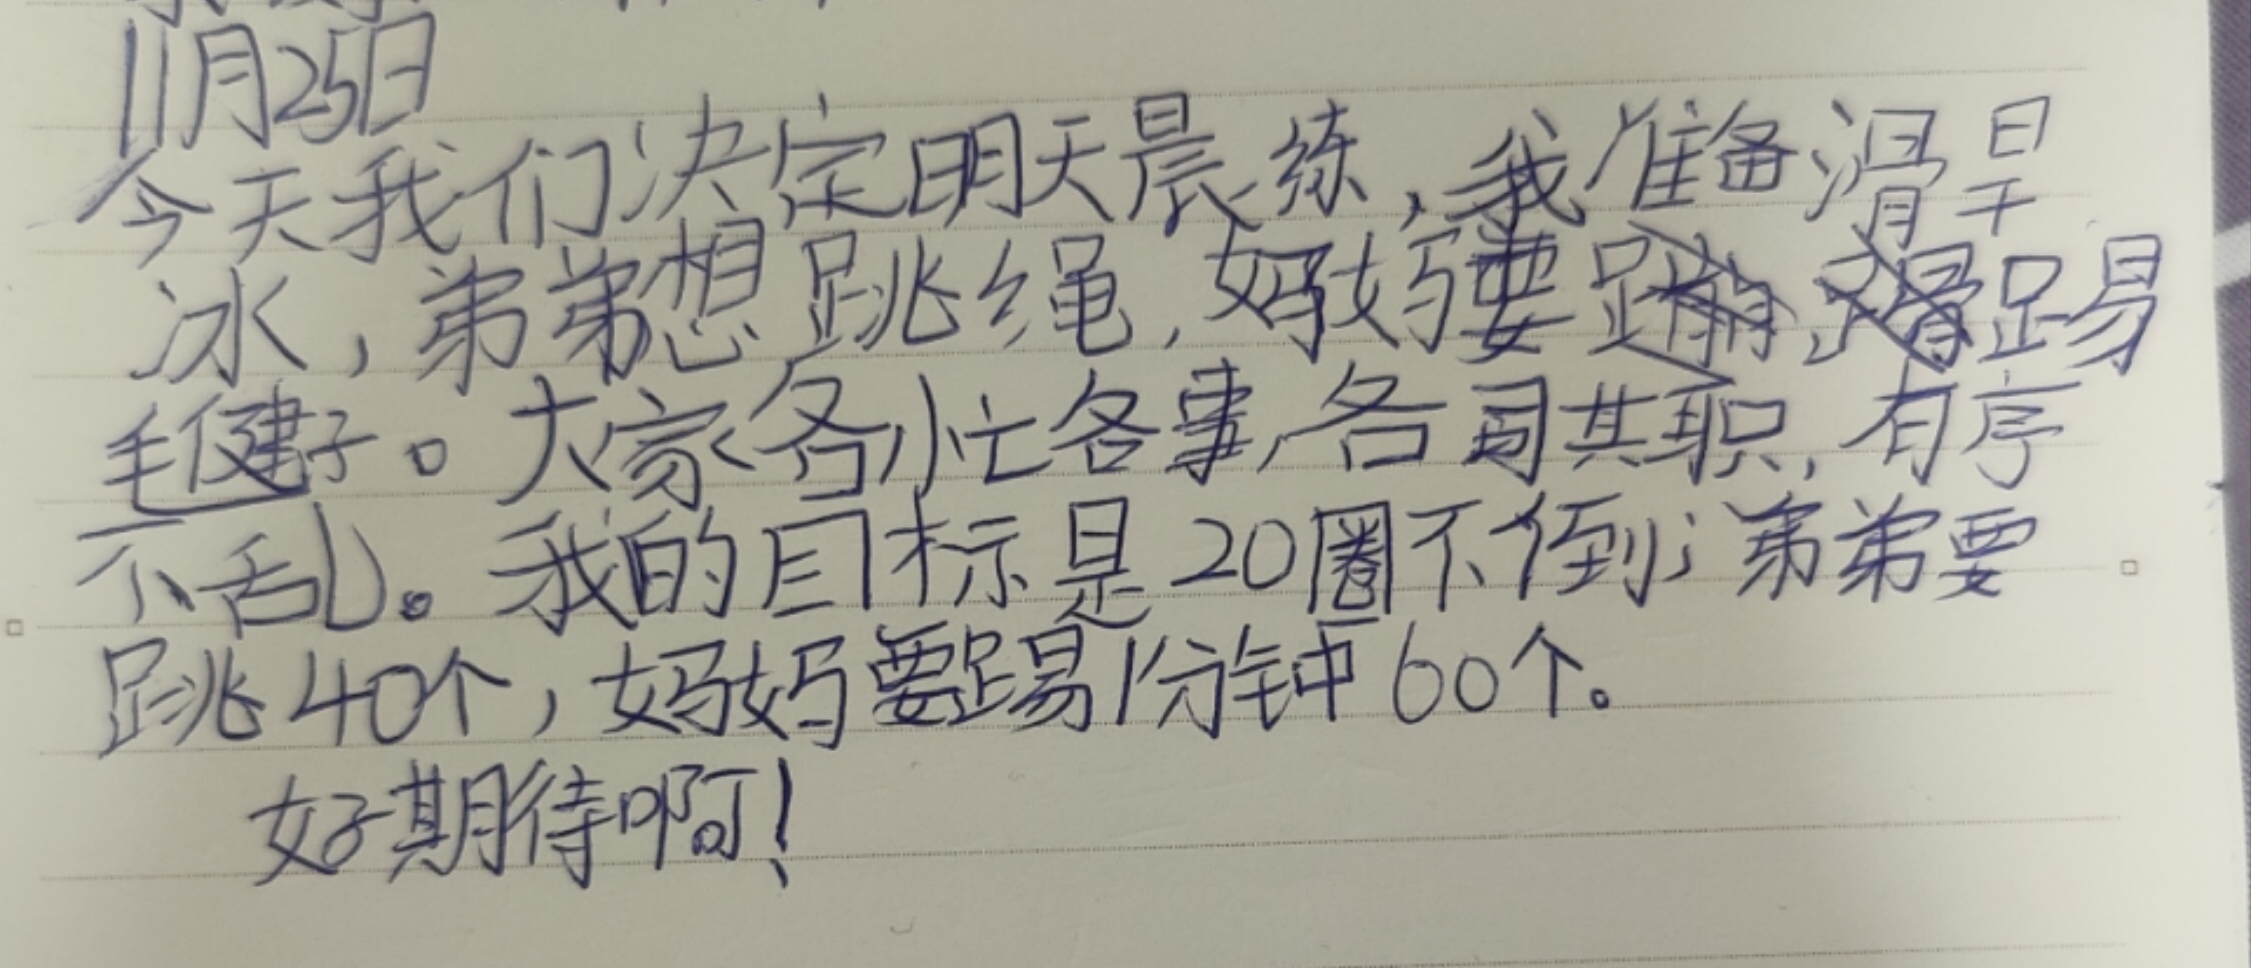 11月25日
今天我们决定明天晨练,我准备滑旱
冰,弟弟想跳绳,妈妈要踢
毽子。大家各忙各事,各司其职,有序
不乱。我的目标是20圈不倒;弟弟要
跳40个,妈妈要踢1分钟60个。
好期待啊!